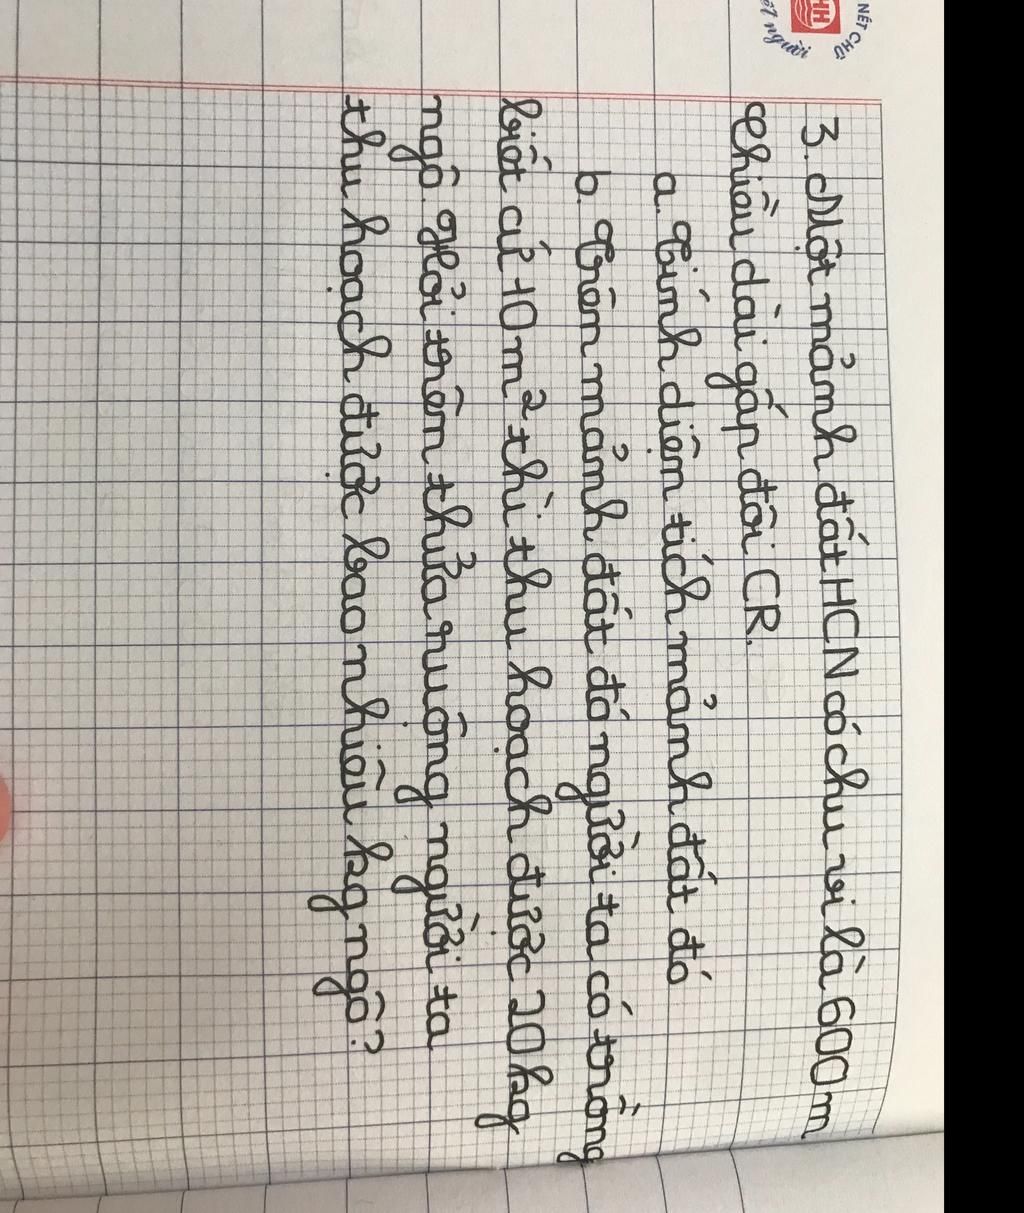 NÉT CHỮ
nết người
HH
3. Một mảnh đất HCN có chu vi là 600 m
chiều dài gấp đôi CR.
a. Tính diện tích mảnh đất đó
b. Trên mảnh đất đó người ta có trồng
biết cứ 10 m² thì thu hoạch được 20 kg
ngô. Hỏi trên thửa ruộng người ta
thu hoạch được bao nhiêu kg ngô?